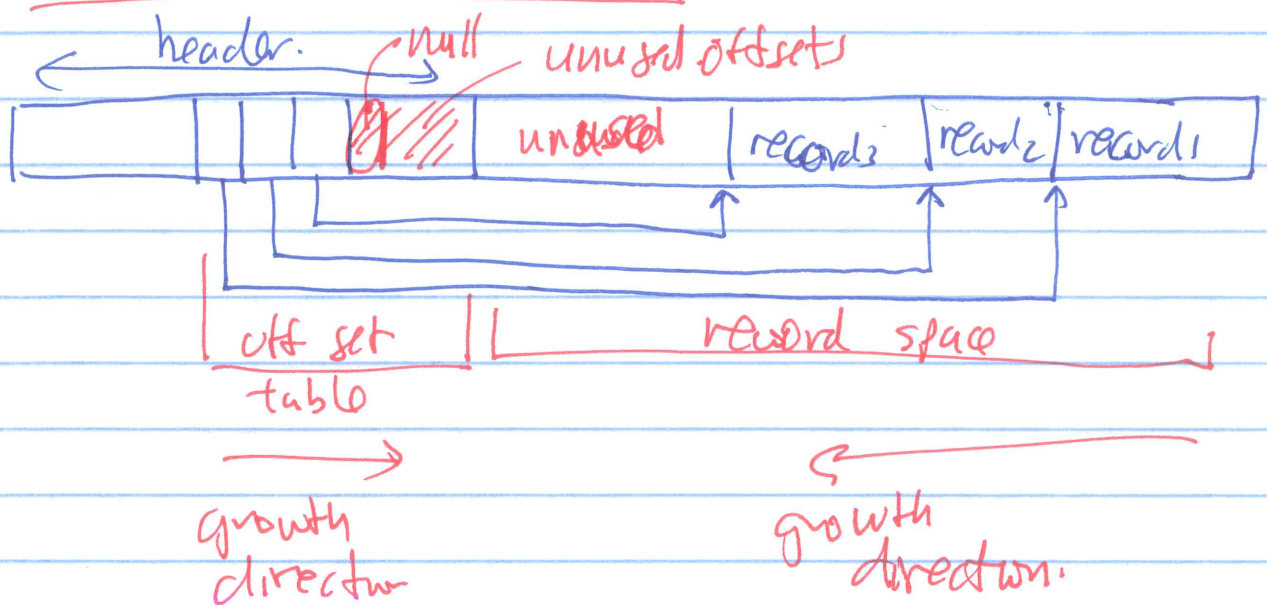 header.
null
unused offsets
unused
record3
record2
record1
off set
table
record space
growth
direction
growth
direction.